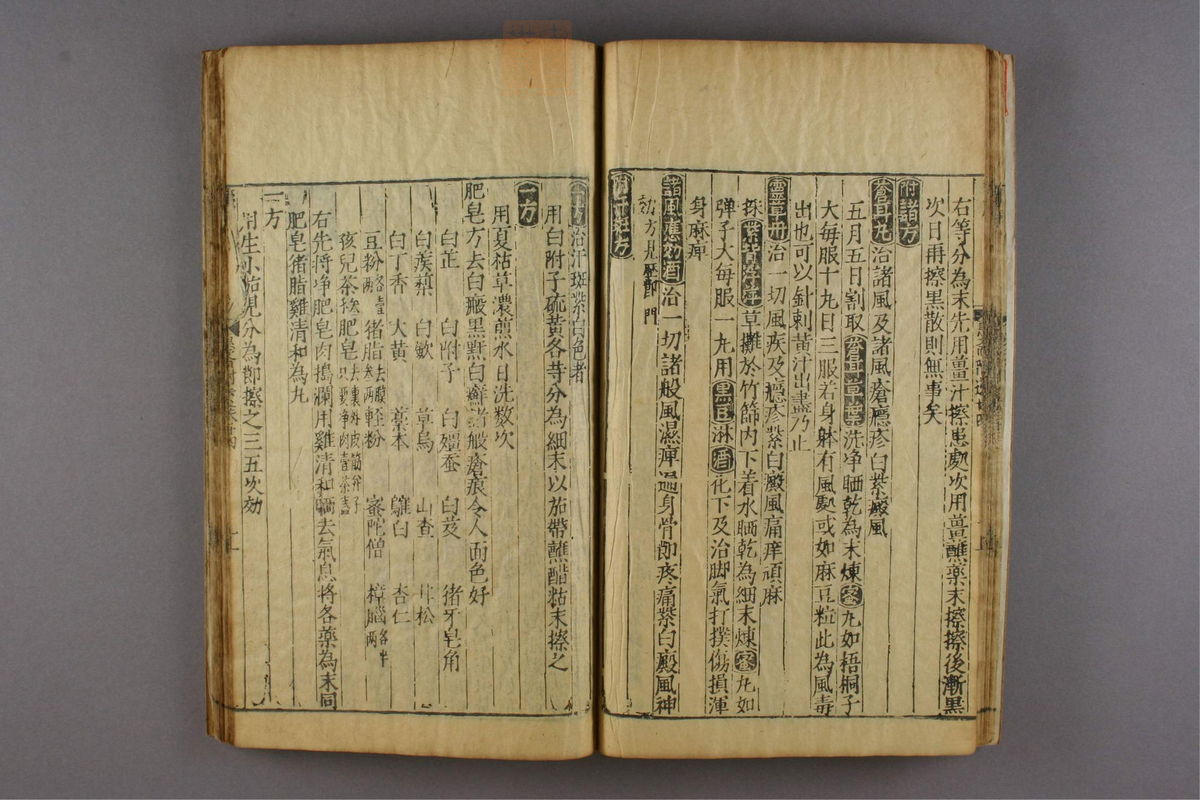 右等分為末先用薑汁擦患處次用薑蘸藥末擦擦後漸黑
次日再擦黑散則無事矣
附諸方
蒼耳丸治諸風及諸風瘡癮疹白紫癜風
五月五日割取蒼耳草葉洗净晒乾為末煉蜜丸如梧桐子
大每服十丸日三服若身躰有風䖏或如麻豆粒此為風毒
出也可以針刺黃汁出盡乃止
靈草丹治一切風疾及癮疹紫白癜風痛痒頑麻
採紫背浮萍草攤於竹篩内下着水晒乾為細末煉蜜丸如
弹子大每服一丸用黒豆淋酒化下及治脚氣打撲傷損渾
身麻痺
諸風應効酒治一切諸般風濕痺遍身骨節疼痛紫白癜風神
効方見歷節門
附汗斑方
一方治汗斑紫白色者
用白附子硫黃各等分為細末以茄帶蘸醋粘末擦之
一方
用夏枯草濃煎水日洗数次
肥皂方去白癜黑䵟白癬諸般瘡痕令人面色好
白芷 白附子 白殭蚕 白芨 猪牙皂角
白蒺梨 白歛 草烏 山查 甘松
白丁香 大黃 藁本 鶴白 杏仁
豆粉 猪脂 去膜叁兩 輕粉 蜜陀僧 樟脳 各半兩
孩兒茶 肥皂
右先将净肥皂肉搗爛用雞清和晒去氣息将各藥為末同
肥皂猪脂雞清和為丸
一方
用生小茄兒分為即擦之三五次効